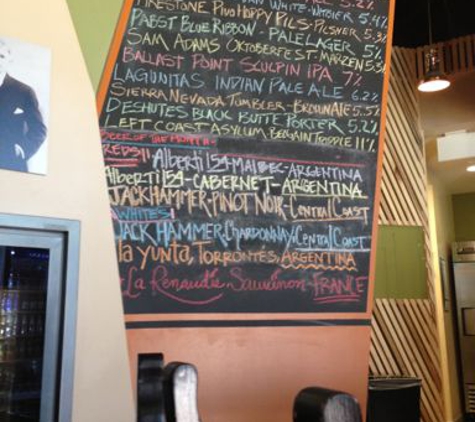 WHITE-WHITBIER 5.4%
FIRESTONE PIVO HAPPY PILS-PILSNER 5.3%
PABST BLUE RIBBON - PALE LAGER 5%
SAM ADAMS OKTOBERFEST-MARZEN 5.3%
BALLAST POINT SCULPIN IPA 7%
LAGUNITAS INDIAN PALE ALE 6.2%
SIERRA NEVADA TUMBLER-BROWN ALE 5.5%
DESHUTES BLACK BUTTE PORTER 5.2%
LEFT COAST ASYLUM, BELGAIN TRIPPLE 11%
BEER OF THE MONTH-
REDS!! Alberti 154-MALBEC-ARGENTINA
Alberti 154-CABERNET-ARGENTINA
JACKHAMMER-PINOT NOIR-Central COAST
WHITES!
JACKHAMMER, Chardonnay, Central COAST
la Yunta, TORRONTÉS, ARGENTINA
La Renaudie Sauvinon-FRANCE